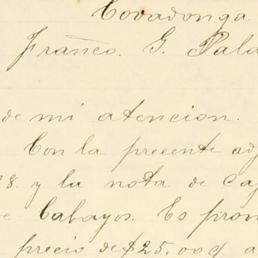 Covadonga
Franco. G. Pala
de mi atencion.
Con la presente ad
y la nota de Caj
Cabayos. Es pron
precio de $25.00 a